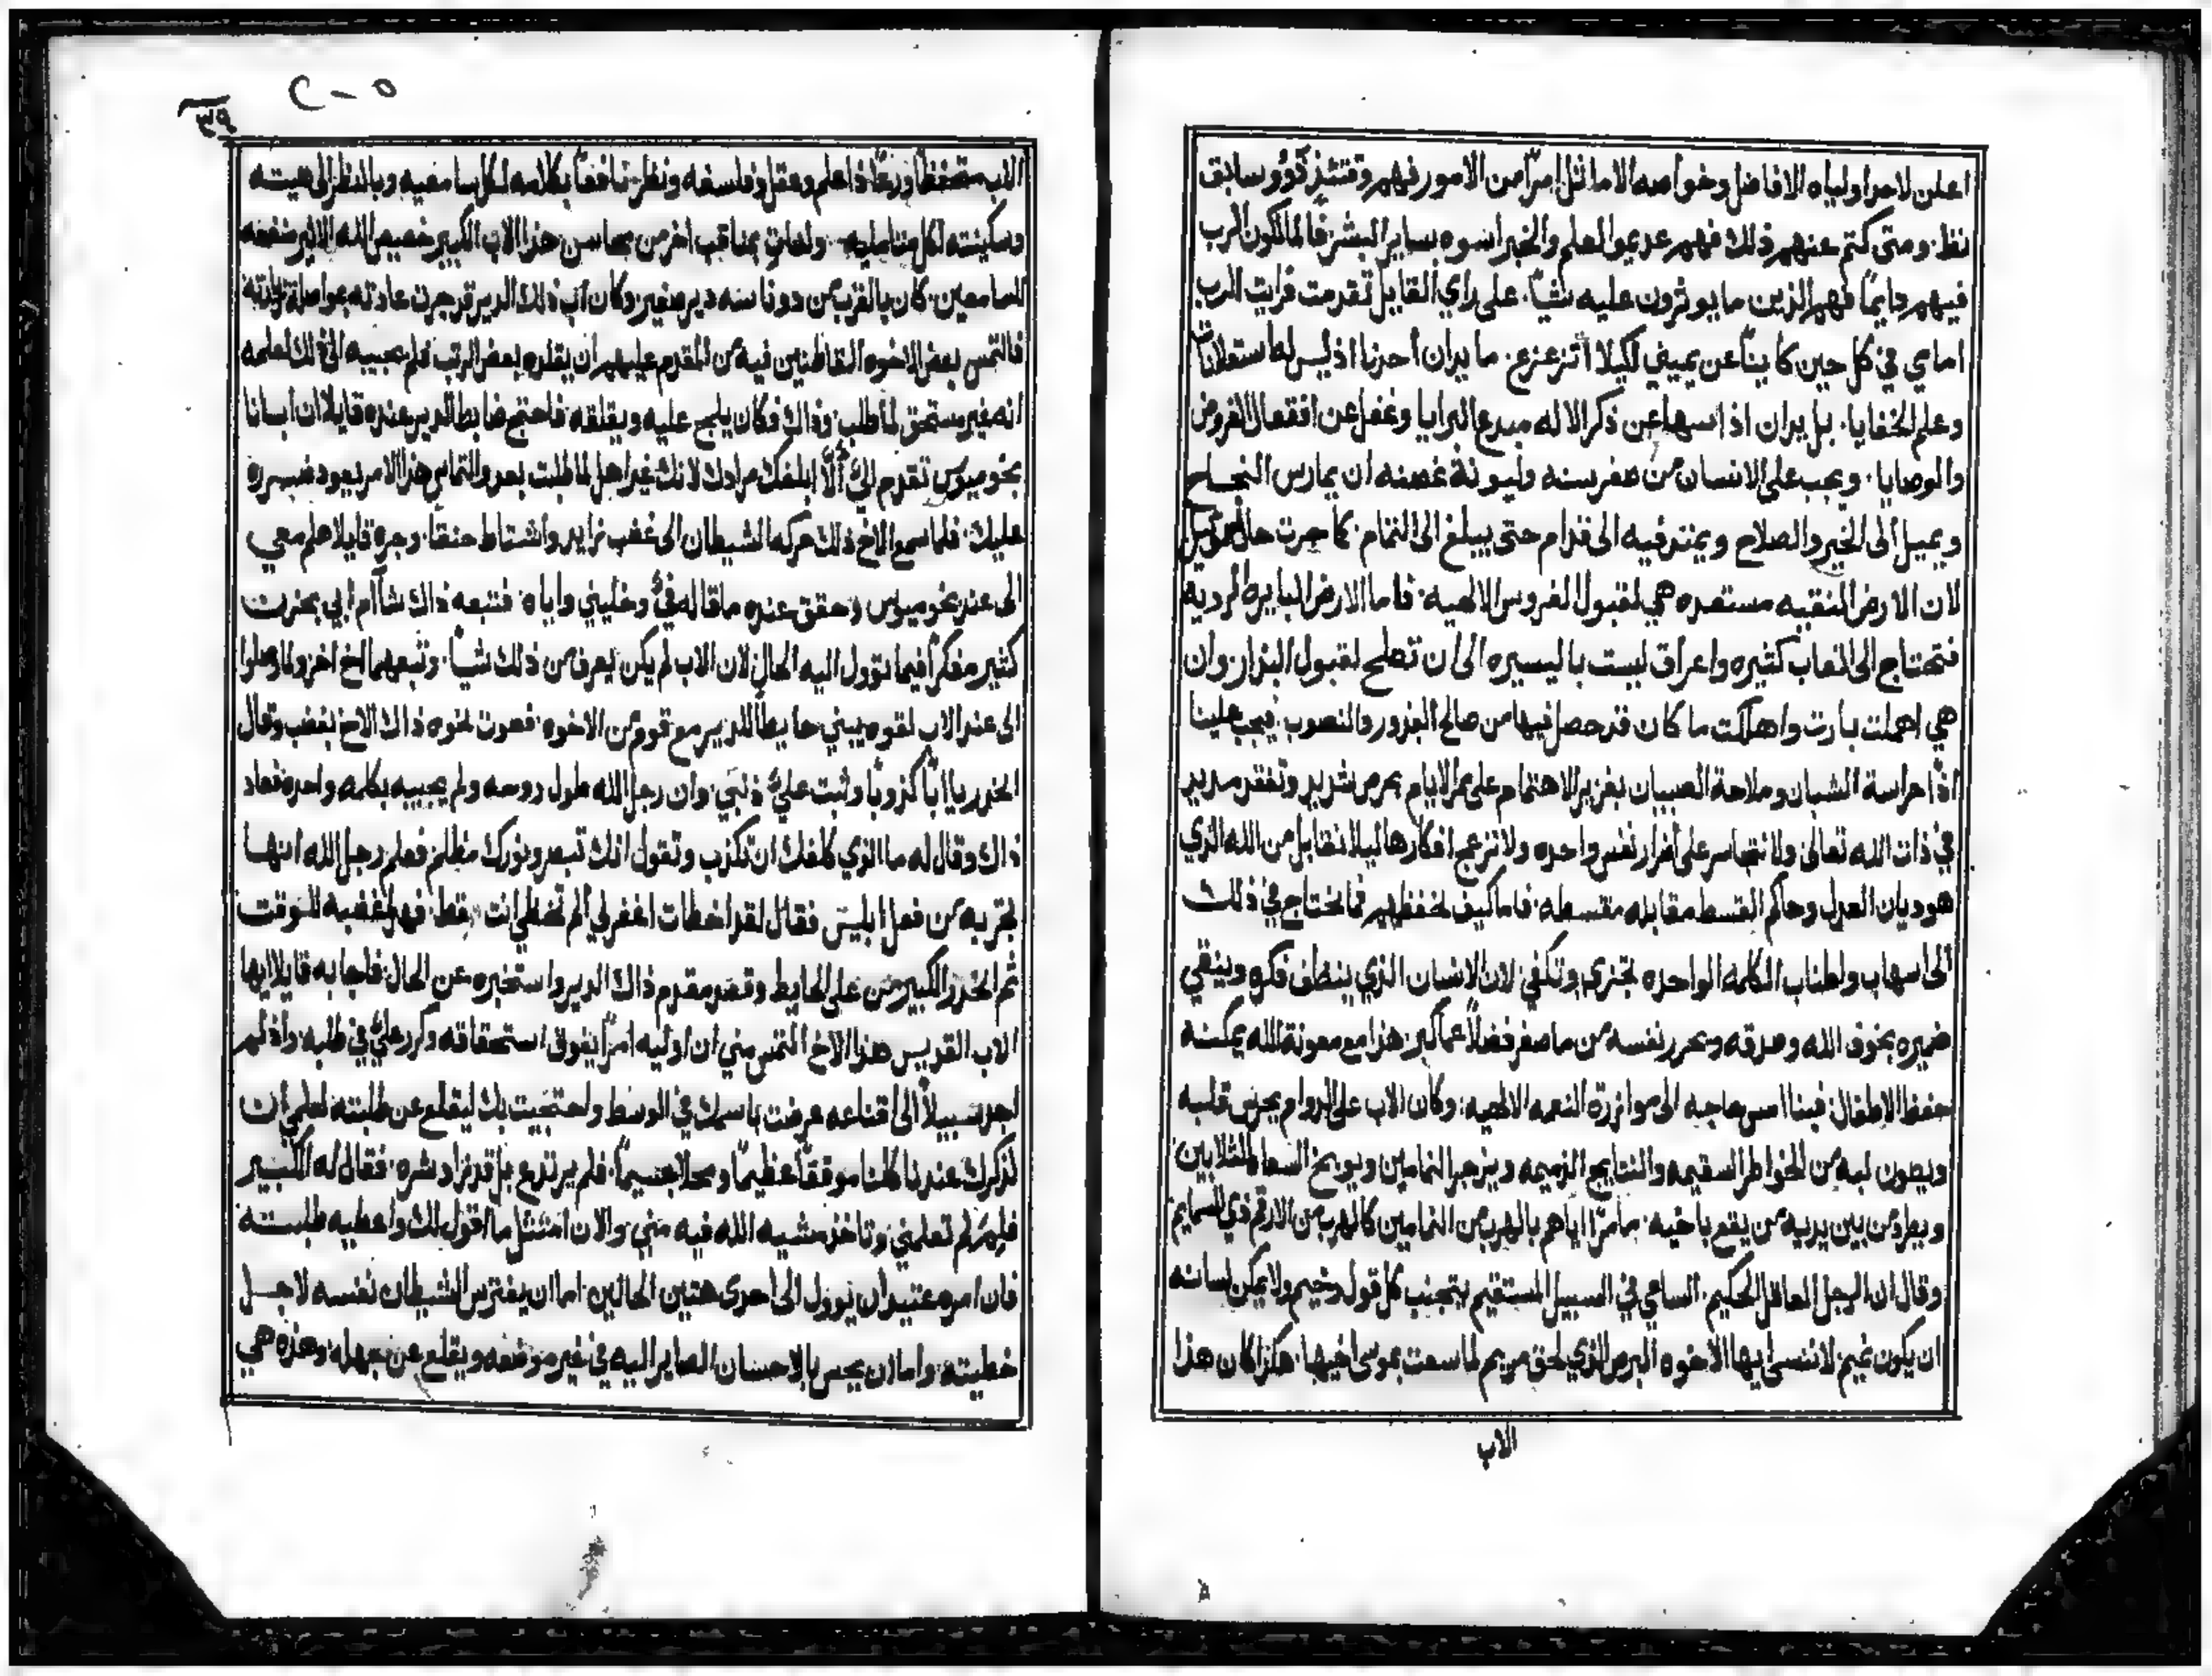 اعلن لاحد اوليايه الافاضل وخواصه الاماثل امرًا من الامور فهم وقتئذ ذوو سابق
نظر ومتى كتم عنهم ذلك فهم عديمو العلم والخبر اسوه بساير البشر فاما لكون الرب
فيهم دايمًا فهم الذين ما يوثرون عليه شيًا على راي القايل تقدمت فرايت الرب
امامي في كل حين كاينًا عن يميني لكيلا اتزعزع ما يران احدنا اذ ليس له استعلانات
وعلم الخفايا بل يران اذا سها عن ذكر الاله مبدع البرايا وغفل عن افتعال الفروض
والوصايا ويجب على الانسان من صغر سنه وليونة غصنه ان يمارس النجاح
ويميل الى الخير والصلاح ويمتد فيه الى قدام حتى يبلغ الى التمام كما جرت حال
لان الارض النقيه مستعده هي لقبول الغروس الالهيه فاما الارض البايره الرديه
فتحتاج الى اتعاب كثيره واعراق ليست باليسيره الى ان تصلح لقبول البذار وان
هي اهملت بارت واهلكت ما كان قد حصل فيها من صالح البذور والنصوب فيجب علينا
اذًا حراسة الشبان وملاحة الصبيان بغزير الاهتمام على ممر الايام بحرص شديد وتفقد مديد
في ذات الله تعالى ولا نتجاسر على اضرار نفس واحده ولا نزعج افكارها ليلا نقابل من الله الذي
هو ديان العدل وحاكم القسط مقابله مقسطه فاما كيف نحفظهم فما نحتاج في ذلك
الى اسهاب واطناب الكلمه الواحده تجزي وتكفي لان الانسان الذي ينظف فكره وينقي
ضميره بخوف الله وصدقه ويحرر نفسه من ما صغر فضلًا عما كبر هذا مع معونة الله يمكنه
حفظ الاطفال فبنا امس حاجه الى موازرة النعمه الالهيه وكان الاب على الدوام يحرس قلبه
ويصون لبه من الخواطر السقيمه والنتايج الذميمه ويزجر النمامين ويوبخ السعاه الثلابين
ويطرد من بين يديه من يقع باخيه مامرًا اياهم بالهرب من النمامين كالهرب من الارقم ذي السمايم
وقال ان الرجل العاقل الحكيم الساعي في السبيل المستقيم يتجنب كل قول وخيم ولا يمكن لسانه
ان يكون نميم لا ننسى ايها الاخوه البرص الذي لحق مريم لما سعت بموسى اخيها هكذا كان هذا
الاب
٣٩
الاب متحفظًا ورعًا ذا علم وعقل وفلسفه ونظر نافعًا بكلامه لكل سامعيه وبالنظر الى هيئته
وسكينته لكل متامليه ولنات بمناقب اخر من محاسن هذا الاب الكبير خصيص الله الاثير منفعه
للسامعين كان بالقرب من دوناسه دير صغير وكان اب ذلك الدير قد جرت عادته بمواصلة زيارته
فالتمس بعض الاخوه القاطنين فيه من المقدم عليهم ان يقلده بعض الرتب فلم يجيبه الى ذلك لعلمه
انه غير مستحق لما طلب وذاك فكان يلج عليه ويقلقه فاحتج ضابط الدير عنده قايلًا ان ابانا
بخوميوس تقدم اليّ الّا ابلغك مرادك لانك غير اهل لما طلبت بعد والتماس هذا الامر يعود ضرره
عليك فلما سمع الاخ ذلك حركه الشيطان الى غضب زايد واشتاط حنقًا وجره قايلا هلم معي
الى عند بخوميوس وحقق عنده ما قاله فيّ وخليني واياه فتبعه ذاك شا ام ابى بحزن
كثير مفكرًا فيما توول اليه الحال لان الاب لم يكن يعرف من ذلك شيًا وتبعهما اخ اخر ولما وصلوا
الى عند الاب لقوه يبني حايطًا للدير مع قوم من الاخوه فصوت نحوه ذاك الاخ بغضب وقال
انحدر يا ابًا كذوبًا وثبت عليّ ذنبي وان رجل الله طول روحه ولم يجيبه بكلمه واحده فعاد
ذاك وقال له ما الذي كلفك ان تكذب وتقول انك تبصر ونورك مظلم فعلم رجل الله انها
تجربه من فعل ابليس فقال لقد اخطات اغفر لي الم تخطي انت قط فهدا غضبه للوقت
ثم انحدر الكبير من على الحايط وقصد مقدم ذاك الدير واستخبره عن الحال فاجابه قايلا ايها
الاب القديس هذا الاخ التمس مني ان اوليه امرًا يفوق استحقاقه وكرر عليّ في طلبه واذ لم
اجد سبيلًا الى اقناعه عرضت باسمك في الوسط واحتجيت بك ليقلع عن طلبته لعلمي ان
لذكرك عندنا كلنا موقفًا عظيمًا ومحلًا جسيمًا فلم يرتدع بل قد زاد شره فقال له الكبير
فلم لم تعلمني وتاخذ مشيه الله فيه مني والان امتثل ما اقول لك واعطيه طلبته
فان امره عتيد ان يوول الى احدى هتين الحالين اما ان يفترس الشيطان نفسه لاجل
خطيته واما ان يحس بالاحسان الصاير اليه في غير موضعه ويقلع عن جهله وهذه هي